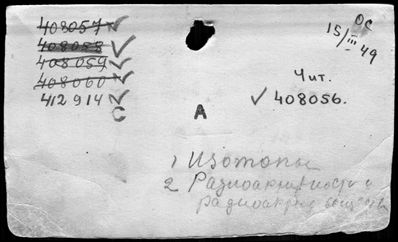 408057
408058
408059
408060
412914
С
А
ОС
15/III 49
Чит.
408056.
1 Изотопы
2 Радиоактивность и
радиоактив. вещества